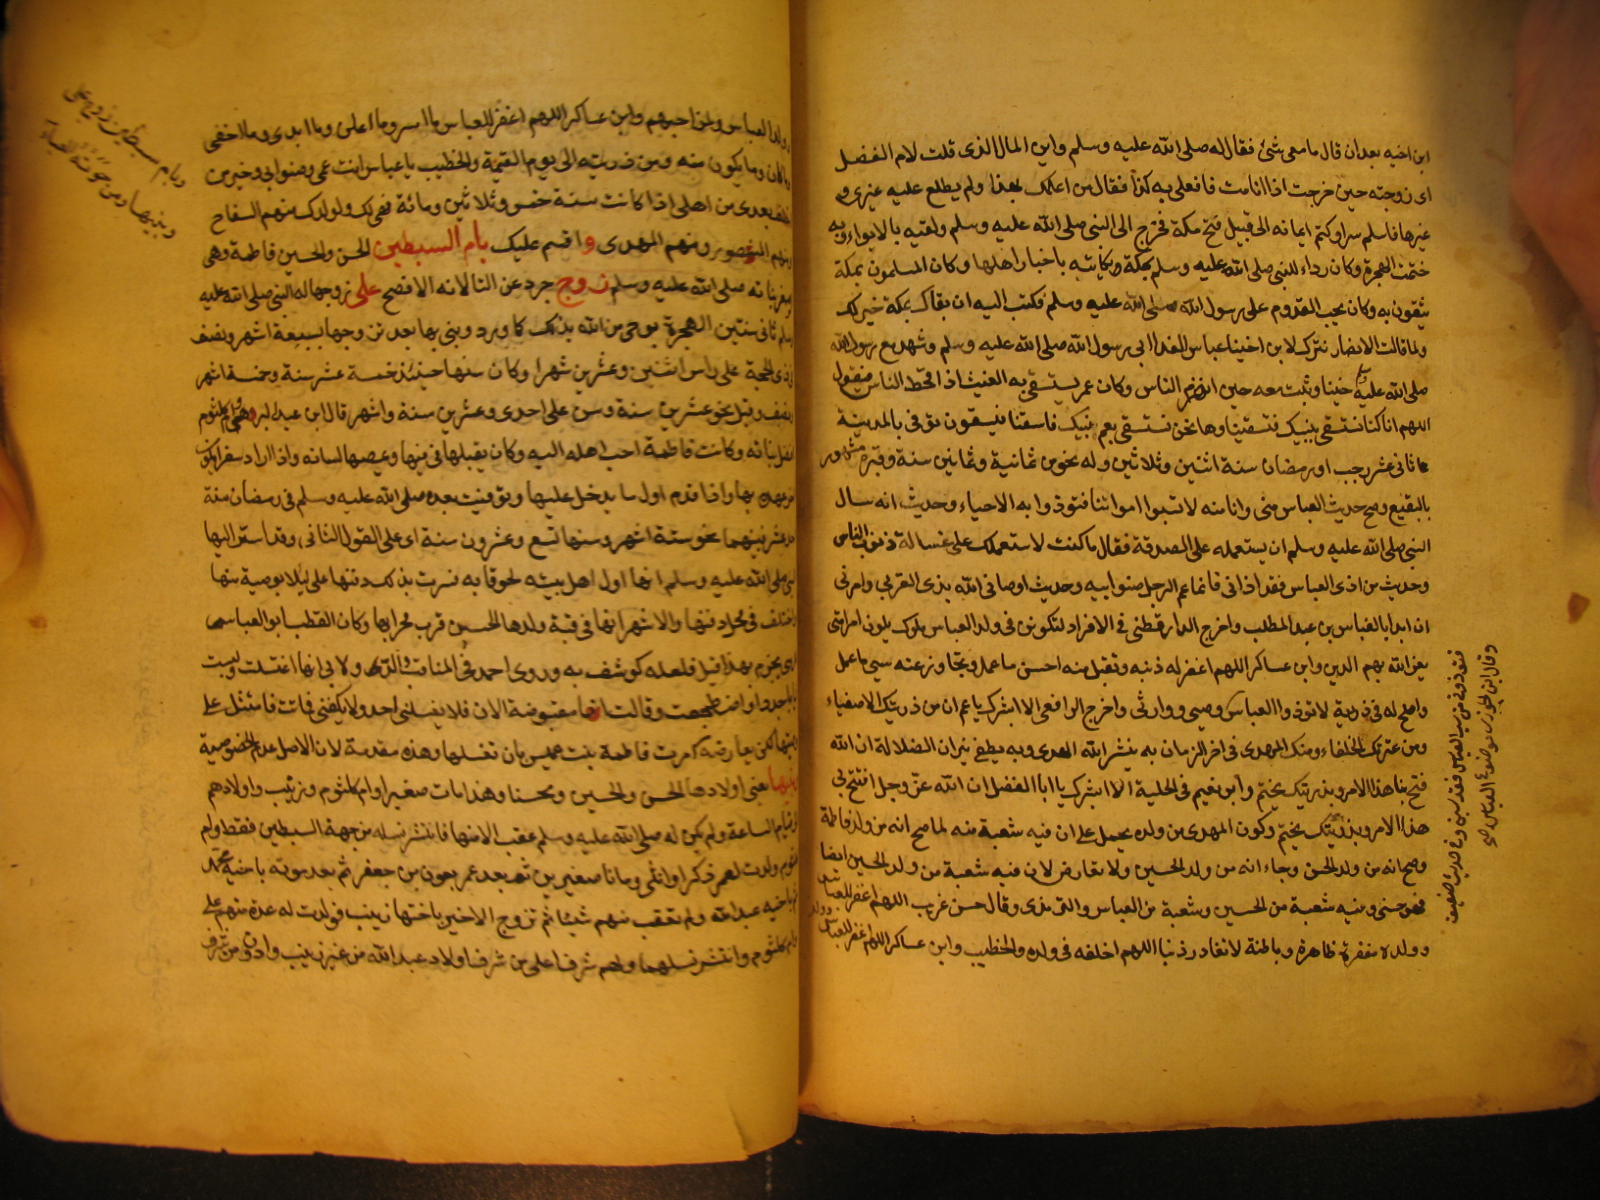 ابن اخيه بعد ان قال ما معى شئ فقال له صلى الله عليه وسلم واين المال الذى قلت لام الفضل
اى زوجته حين خرجت اذا انا مت فافعلى به كذا فقال من اعلمك بهذا ولم يطلع عليه غيرى و
غيرها فاسلم سرا وكتم ايمانه الى قبيل فتح مكة فخرج الى النبى صلى الله عليه وسلم ولقيه بالابواء وبه
ختمت الهجرة وكان رداء للنبى صلى الله عليه وسلم بمكة يكاتبه باخبار اهلها وكان المسلمون بمكة
يثقون به وكان يحب القدوم على رسول الله صلى الله عليه وسلم فكتب اليه ان بقاك بمكة خير لك
ولما قالت الانصار نترك لابن اختنا عباس الفدا ابى رسول الله صلى الله عليه وسلم وشهد مع رسول الله
صلى الله عليه وسلم حنينا وثبت معه حين انهزم الناس وكان عمر يستسقى به الغيث اذا قحط الناس فيقول
اللهم انا كنا نستسقى بنبيك فتسقينا وها نحن نستسقى بعم نبيك فاسقنا فيسقون توفى بالمدينة
ثانى عشر رجب او رمضان سنة اثنين وثلاثين وله نحو من ثمانية وثمانين سنة وقبره مشهور
بالبقيع وصح حديث العباس منى وانا منه لا تسبوا امواتنا فتوذوا به الاحياء وحديث انه سال
النبى صلى الله عليه وسلم ان يستعمله على الصدقة فقال ما كنت لاستعملك على غسالة ذنوب الناس
وحديث من اذى العباس فقد اذانى فانما عم الرجل صنو ابيه وحديث اوصانى الله بذى القربى وامرنى
ان ابدا بالعباس بن عبد المطلب واخرج الدارقطنى فى الافراد لتكونن فى ولد العباس ملوك يلون امر امتى
يعز الله بهم الدين وابن عساكر اللهم اغفر له ذنبه وتقبل منه احسن ما عمل وتجاوز عنه سيئ ما عمل
واصلح له فى ذريته لا توذوا العباس وصيى ووارثى واخرج الرافعى الا ابشرك يا عم ان من ذريتك الاصفياء
ومن عترتك الخلفاء ومنك المهدى فى اخر الزمان به ينشر الله الهدى وبه يطفى نيران الضلالة ان الله
فتح بنا هذا الامر وبذريتك يختم وابو نعيم فى الحلية الا ابشرك يا ابا الفضل ان الله عز وجل افتتح بى
هذا الامر وبذريتك يختم وكون المهدى من ولده يحمل على ان فيه شعبة منه لما صح انه من ولد فاطمة
وصح انه من ولد الحسن وجاء انه من ولد الحسين ولا تعارض لان فيه شعبة من ولد الحسين ايضا
فهو حسنى وفيه شعبة من الحسين وشعبة من العباس والترمذى وقال حسن غريب اللهم اغفر للعباس
وولده مغفرة ظاهرة وباطنة لا تغادر ذنبا اللهم اخلفه فى ولده والخطيب وابن عساكر اللهم اغفر للعباس وولد
ولد العباس ولمن احبهم وابن عساكر اللهم اغفر للعباس ما اسر وما اعلن وما ابدى وما اخفى
وما كان وما يكون منه ومن ذريته الى يوم القيمة والخطيب يا عباس انت عمى وصنو ابى وخير من
اخلف بعدى من اهلى اذا كانت سنة خمس وثلاثين ومائة فهى لك ولولدك منهم السفاح
ومنهم المنصور ومنهم المهدى واقسم عليك بام السبطين الحسن والحسين فاطمة وهى
اصغر بناته صلى الله عليه وسلم زوج جرد عن التا لانه الافصح على زوجها له النبى صلى الله عليه
وسلم ثانى سنين الهجرة بوحى من الله بذلك كما ورد وبنى بها بعد تزوجها بسبعة اشهر ونصف
فى ذى الحجة على راس اثنين وعشرين شهرا وكان سنها حينئذ خمسة عشر سنة وخمسة اشهر
ونصف وقيل نحو عشرين سنة وسن على احدى وعشرين سنة واشهر قال ابن عبد البر وهى وام كلثوم
افضل بناته وكانت فاطمة احب اهله اليه وكان يقبلها فى فيها ويمصها لسانه واذا اراد سفرا يكون
عهده بها واذا قدم اول ما يدخل عليها وتوفيت بعده صلى الله عليه وسلم فى رمضان سنة
عشر بينهما نحو ستة اشهر وسنها تسع وعشرون سنة اى على القول الثانى وقد اسر اليها
النبى صلى الله عليه وسلم انها اول اهل بيته لحوقا به فسرت بذلك دفنها على ليلا بوصية منها
واختلف فى محل دفنها والاشهر انها فى قبة ولدها الحسن قرب محرابها وكان القطب ابو العباس
المرسى يجزم بهذا قيل فلعله كوشف به وروى احمد فى المناقب والدولابى انها اغتسلت ولبست
ثيابا جددا واضطجعت وقالت انها مقبوضة الان فلا يغسلنى احد ولا يكفننى فماتت فامتثل على
وصيتها لكن يعارضه كون اسماء بنت عميس بان تغسلها وهذه مقدمة لان الاصل عدم الخصوصية
وبنيها يعنى اولادها الحسن والحسين ومحسنا وهذا مات صغيرا وام كلثوم وزينب واولادهم
الى قيام الساعة ولم يكن له صلى الله عليه وسلم عقب الا منها فانتشر نسله من جهة السبطين فقط وام
كلثوم ولدت لعمر ذكرا وانثى وماتا صغيرين ثم بعد عمر بعون بن جعفر ثم بعد موته باخيه محمد
ثم باخيه عبد الله ولم تعقب منهم شيئا ثم تزوج الاخير باختها زينب فولدت له عدة منهم على
وام كلثوم وانتشر نسلهما ولهم شرف اعلى من شرف اولاد عبد الله من غير زينب وادون من شرف
وبام سبطين زوج على
وبنيها ومن حوته العباء